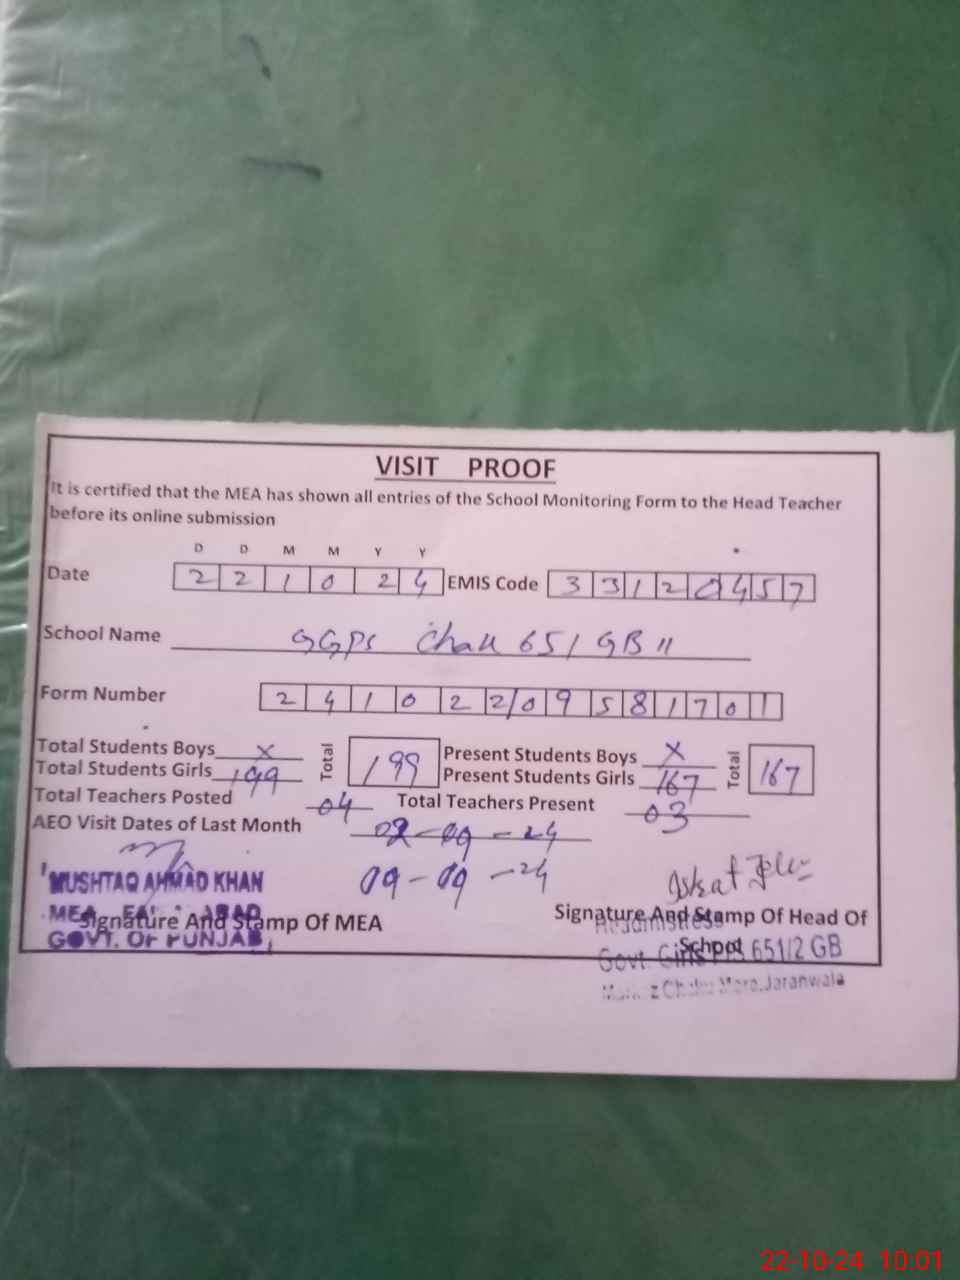 VISIT PROOF
It is certified that the MEA has shown all entries of the School Monitoring Form to the Head Teacher
before its online submission
D D M M Y Y
Date 2 2 1 0 2 4 EMIS Code 3 3 1 2 0 4 5 7
School Name GGPS Chak 651 GB II
Form Number 2 4 1 0 2 2 0 9 5 8 1 7 0 1
Total Students Boys X Total 199 Present Students Boys X Total 167
Total Students Girls 199 Present Students Girls 167
Total Teachers Posted 04 Total Teachers Present 03
AEO Visit Dates of Last Month 02-09-24
09-09-24
MUSHTAQ AHMAD KHAN
MEA
GOVT. OF PUNJAB
Signature And Stamp Of MEA
Signature And Stamp Of Head Of
School
Headmistress
Govt. Girls P/S 651/2 GB
Jaranwala
22-10-24 10:01